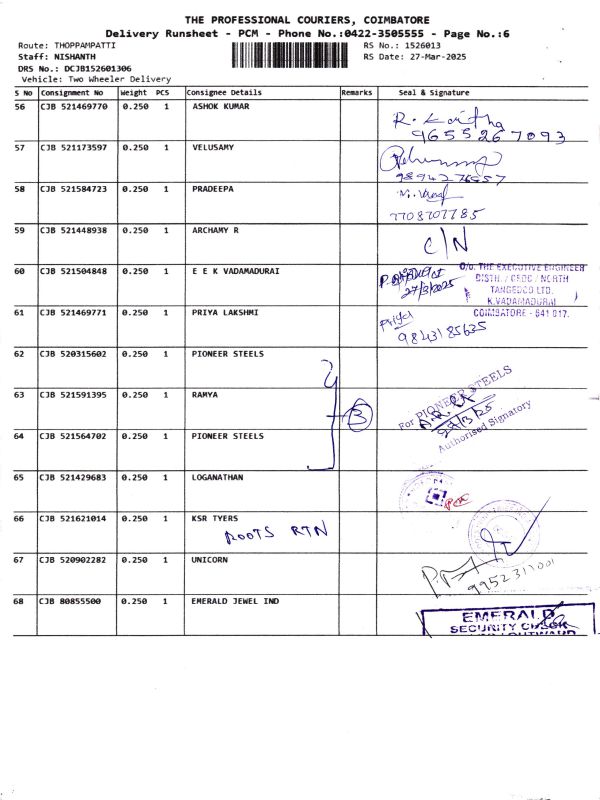 THE PROFESSIONAL COURIERS, COIMBATORE
Delivery Runsheet - PCM - Phone No.:0422-3505555 - Page No.:6
Route: THOPPAMPATTI RS No.: 1526013
Staff: NISHANTH RS Date: 27-Mar-2025
DRS No.: DCJB152601306
Vehicle: Two Wheeler Delivery
S No Consignment No Weight PCS Consignee Details Remarks Seal & Signature
56 CJB 521469770 0.250 1 ASHOK KUMAR
9655267093
57 CJB 521173597 0.250 1 VELUSAMY
9894276557
58 CJB 521584723 0.250 1 PRADEEPA
7708707785
59 CJB 521448938 0.250 1 ARCHAMY R
C/N
60 CJB 521504848 0.250 1 E E K VADAMADURAI
27/3/2025
O/o. THE EXECUTIVE ENGINEER
DISTN. / CEDC / NORTH
TANGEDCO LTD.
K.VADAMADURAI
COIMBATORE - 641 017.
61 CJB 521469771 0.250 1 PRIYA LAKSHMI
Priya
9843185635
62 CJB 520315602 0.250 1 PIONEER STEELS
63 CJB 521591395 0.250 1 RAMYA
3
For PIONEER STEELS
Authorised Signatory
64 CJB 521564702 0.250 1 PIONEER STEELS
65 CJB 521429683 0.250 1 LOGANATHAN
66 CJB 521621014 0.250 1 KSR TYERS
ROOTS RTN
67 CJB 520902282 0.250 1 UNICORN
9952311001
68 CJB 80855500 0.250 1 EMERALD JEWEL IND
EMERALD
SECURITY CHECK